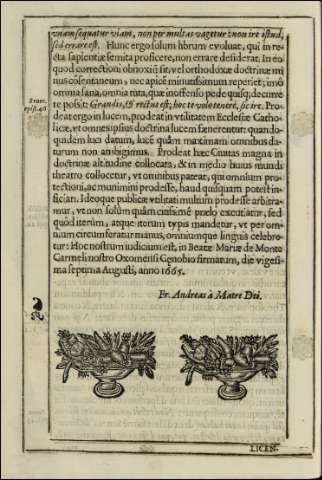 vnam sequatur viam, non per multas vagetur: non ire istud,
sed errare est. Hunc ergo solum librum evoluat, qui in re-
cta sapientiæ semita proficere, non errare desiderat. In eo
quod correctioni obnoxiũ sit, vel orthodoxæ doctrinæ mi
nus cosentaneum, nec apicẽ minutissimum reperiet; imò
omnia sana, omnia tuta, quæ inoffenso pede quisq; decurre
re possit. Grandis, & rectus est; hoc te volo tenere, sic ire. Pro-
deat ergo in lucem, prodeat in vtilitatem Ecclesiæ Catho-
licæ, vt omnes ipsius doctrina lucem fœnerentur: quando-
quidem luci datum, lucẽ quàm maximam omnibus da-
turum non ambigimus. Prodeat hæc Civitas magna in
doctrinæ altitudine collocata, & in medio huius mundi
theatro collocetur, vt omnibus pateat, qui omnium pro-
tectioni, ac munimini prodesse, haud quisquam poterit in-
ficiari. Ideoque publicæ vtilitati multùm prodesse arbitra-
mur, vt non solùm quàm citissimè prælo excutiatur, sed
quòd iterùm, atque iterum typis mandetur, vt per om-
nium circumferatur manus, omniumque linguis celebre-
tur: Hoc nostrum iudicium est, in Beatæ Mariæ de Monte
Carmeli nostro Oxomensi Cœnobio firmatum, die vigesi-
ma septima Augusti, anno 1665.
Fr. Andreas à Matre Dei.
LICEN-